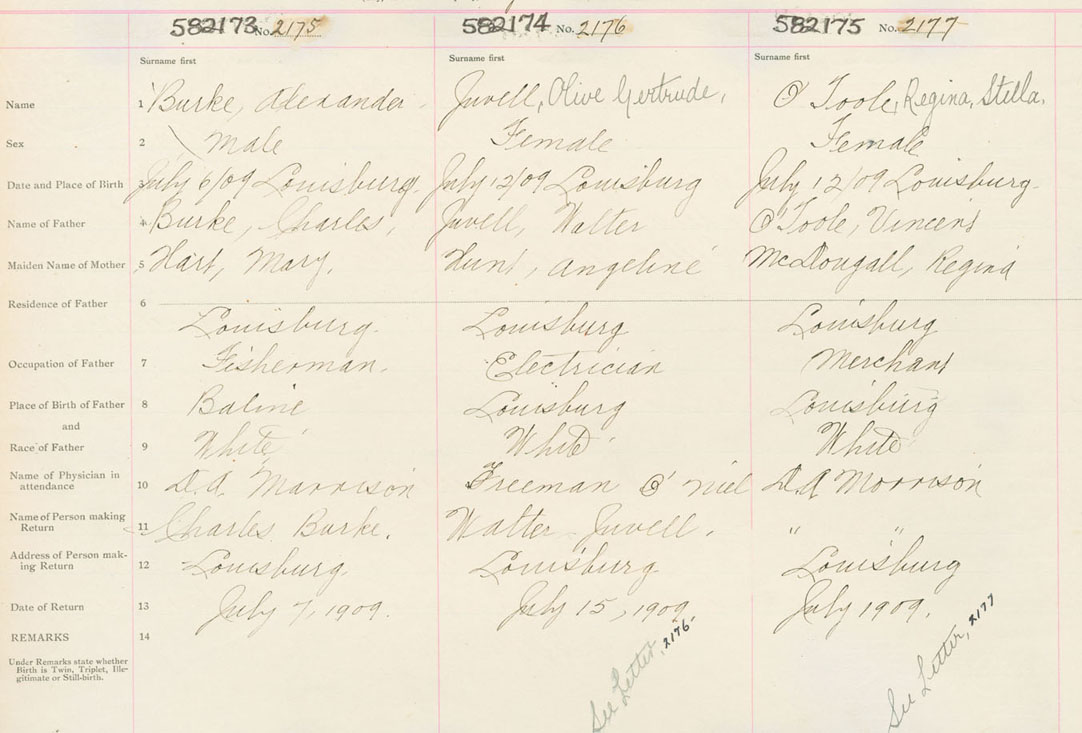 582173 No. 2175 582174 No. 2176 582175 No. 2177
Surname first Surname first Surname first
Name 1 Burke, Alexander. Juvell, Olive Gertrude, O'Toole, Regina, Stella.
Sex 2 Male Female Female
Date and Place of Birth July 6/09 Louisburg. July 12/09 Louisburg July 12/09 Louisburg.
Name of Father 4 Burke, Charles, Juvell, Walter O'Toole, Vincent
Maiden Name of Mother 5 Hart, Mary. Hunt, Angeline McDougall, Regina
Residence of Father 6
Louisburg. Louisburg Louisburg
Occupation of Father 7 Fisherman. Electrician Merchant
Place of Birth of Father 8 Baline Louisburg Louisburg
and
Race of Father 9 White White White
Name of Physician in
attendance 10 D.A. Marrison Freeman O'niel D.A Morrison
Name of Person making
Return 11 Charles Burke. Walter Juvell. " "
Address of Person mak-
ing Return 12 Louisburg Louisburg Louisburg
Date of Return 13 July 7, 1909. July 15, 1909 July 1909.
REMARKS 14
Under Remarks state whether
Birth is Twin, Triplet, Ille-
gitimate or Still-birth.
See Letter, 2176-
See Letter, 2177